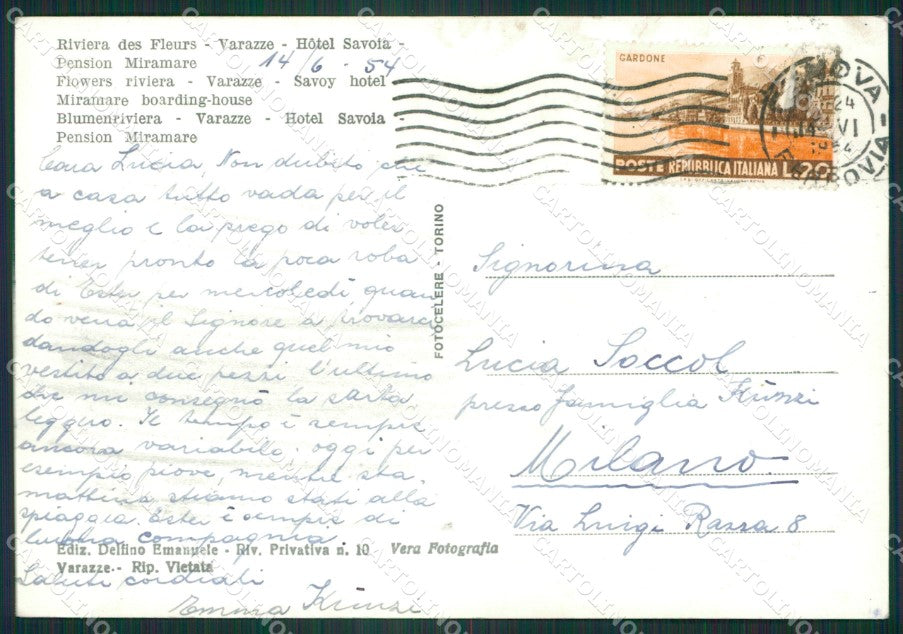 Riviera des Fleurs - Varazze - Hôtel Savoia -
Pension Miramare 14/6 - 54
Flowers riviera - Varazze - Savoy hotel
Miramare boarding-house
Blumenriviera - Varazze - Hotel Savoia -
Pension Miramare
Cara Lucia, Non dubito che
a casa tutto vada per il
meglio e la prego di voler
tener pronto la poca roba
di Ester per mercoledì, quan
do verrà il Signore a trovarci
dandogli anche quel mio
vestito a due pezzi l'ultimo
che mi consegnò la sarta
leggero. Il tempo è sempre
ancora variabile. oggi per
esempio piove, mentre sta
mattina stiamo stati alla
spiaggia. Ester è sempre di
buona compagnia
Ediz. Delfino Emanuele - Riv. Privativa n. 10 Vera Fotografia
Varazze - Rip. Vietata
Saluti cordiali
Emma Künzi
FOTOCELERE - TORINO
GARDONE
POSTE REPUBBLICA ITALIANA L.20
GENOVA
FERROVIA
24
14 VI
1954
Signorina
Lucia Soccol
presso famiglia Künzi
Milano
Via Luigi Razza 8
CARTOLINOMANIA